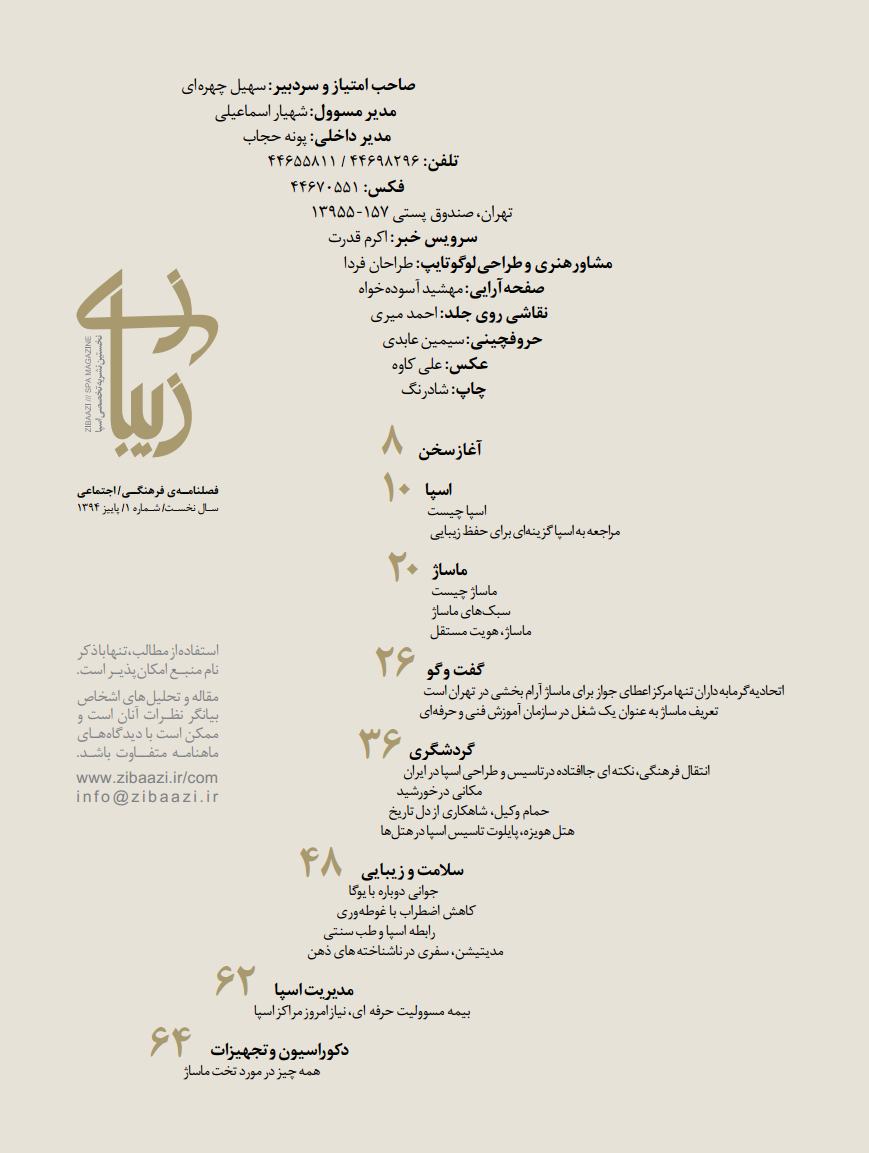 صاحب امتیاز و سردبیر: سهیل چهره‌ای
مدیر مسوول: شهیار اسماعیلی
مدیر داخلی: پونه حجاب
تلفن: ۴۴۶۹۸۲۹۶ / ۴۴۶۵۵۸۱۱
فکس: ۴۴۶۷۰۵۵۱
تهران، صندوق پستی ۱۵۷-۱۳۹۵۵
سرویس خبر: اکرم قدرت
مشاور هنری و طراحی لوگوتایپ: طراحان فردا
صفحه‌آرایی: مهشید آسوده‌خواه
نقاشی روی جلد: احمد میری
حروفچینی: سیمین عابدی
عکس: علی کاوه
چاپ: شادرنگ
زیبازی
نخستین نشریه تخصصی اسپا
ZIBAAZI /// SPA MAGAZINE
فصلنامـه‌ی فرهنگـی/ اجتماعی
سـال نخسـت/ شـماره ۱/ پاییز ۱۳۹۴
آغاز سخن ۸
اسپا ۱۰
اسپا چیست
مراجعه به اسپا گزینه‌ای برای حفظ زیبایی
ماساژ ۲۰
ماساژ چیست
سبک‌های ماساژ
ماساژ، هویت مستقل
گفت و گو ۲۶
اتحادیه گرمابه داران تنها مرکز اعطای جواز برای ماساژ آرام بخشی در تهران است
تعریف ماساژ به عنوان یک شغل در سازمان آموزش فنی و حرفه‌ای
گردشگری ۳۶
انتقال فرهنگی، نکته ای جاافتاده در تاسیس و طراحی اسپا در ایران
مکانی در خورشید
حمام وکیل، شاهکاری از دل تاریخ
هتل هویزه، پایلوت تاسیس اسپا در هتل‌ها
سلامت و زیبایی ۴۸
جوانی دوباره با یوگا
کاهش اضطراب با غوطه‌وری
رابطه اسپا و طب سنتی
مدیتیشن، سفری در ناشناخته های ذهن
مدیریت اسپا ۶۲
بیمه مسوولیت حرفه ای، نیاز امروز مراکز اسپا
دکوراسیون و تجهیزات ۶۴
همه چیز در مورد تخت ماساژ
استفاده از مطالب، تنها با ذکر
نام منبـع امکان‌پذیـر است.
مقاله و تحلیل‌های اشخاص
بیانگر نظـرات آنان است و
ممکن است با دیدگاه‌هـای
ماهنامـه متفـاوت باشـد.
www.zibaazi.ir/com
info@zibaazi.ir